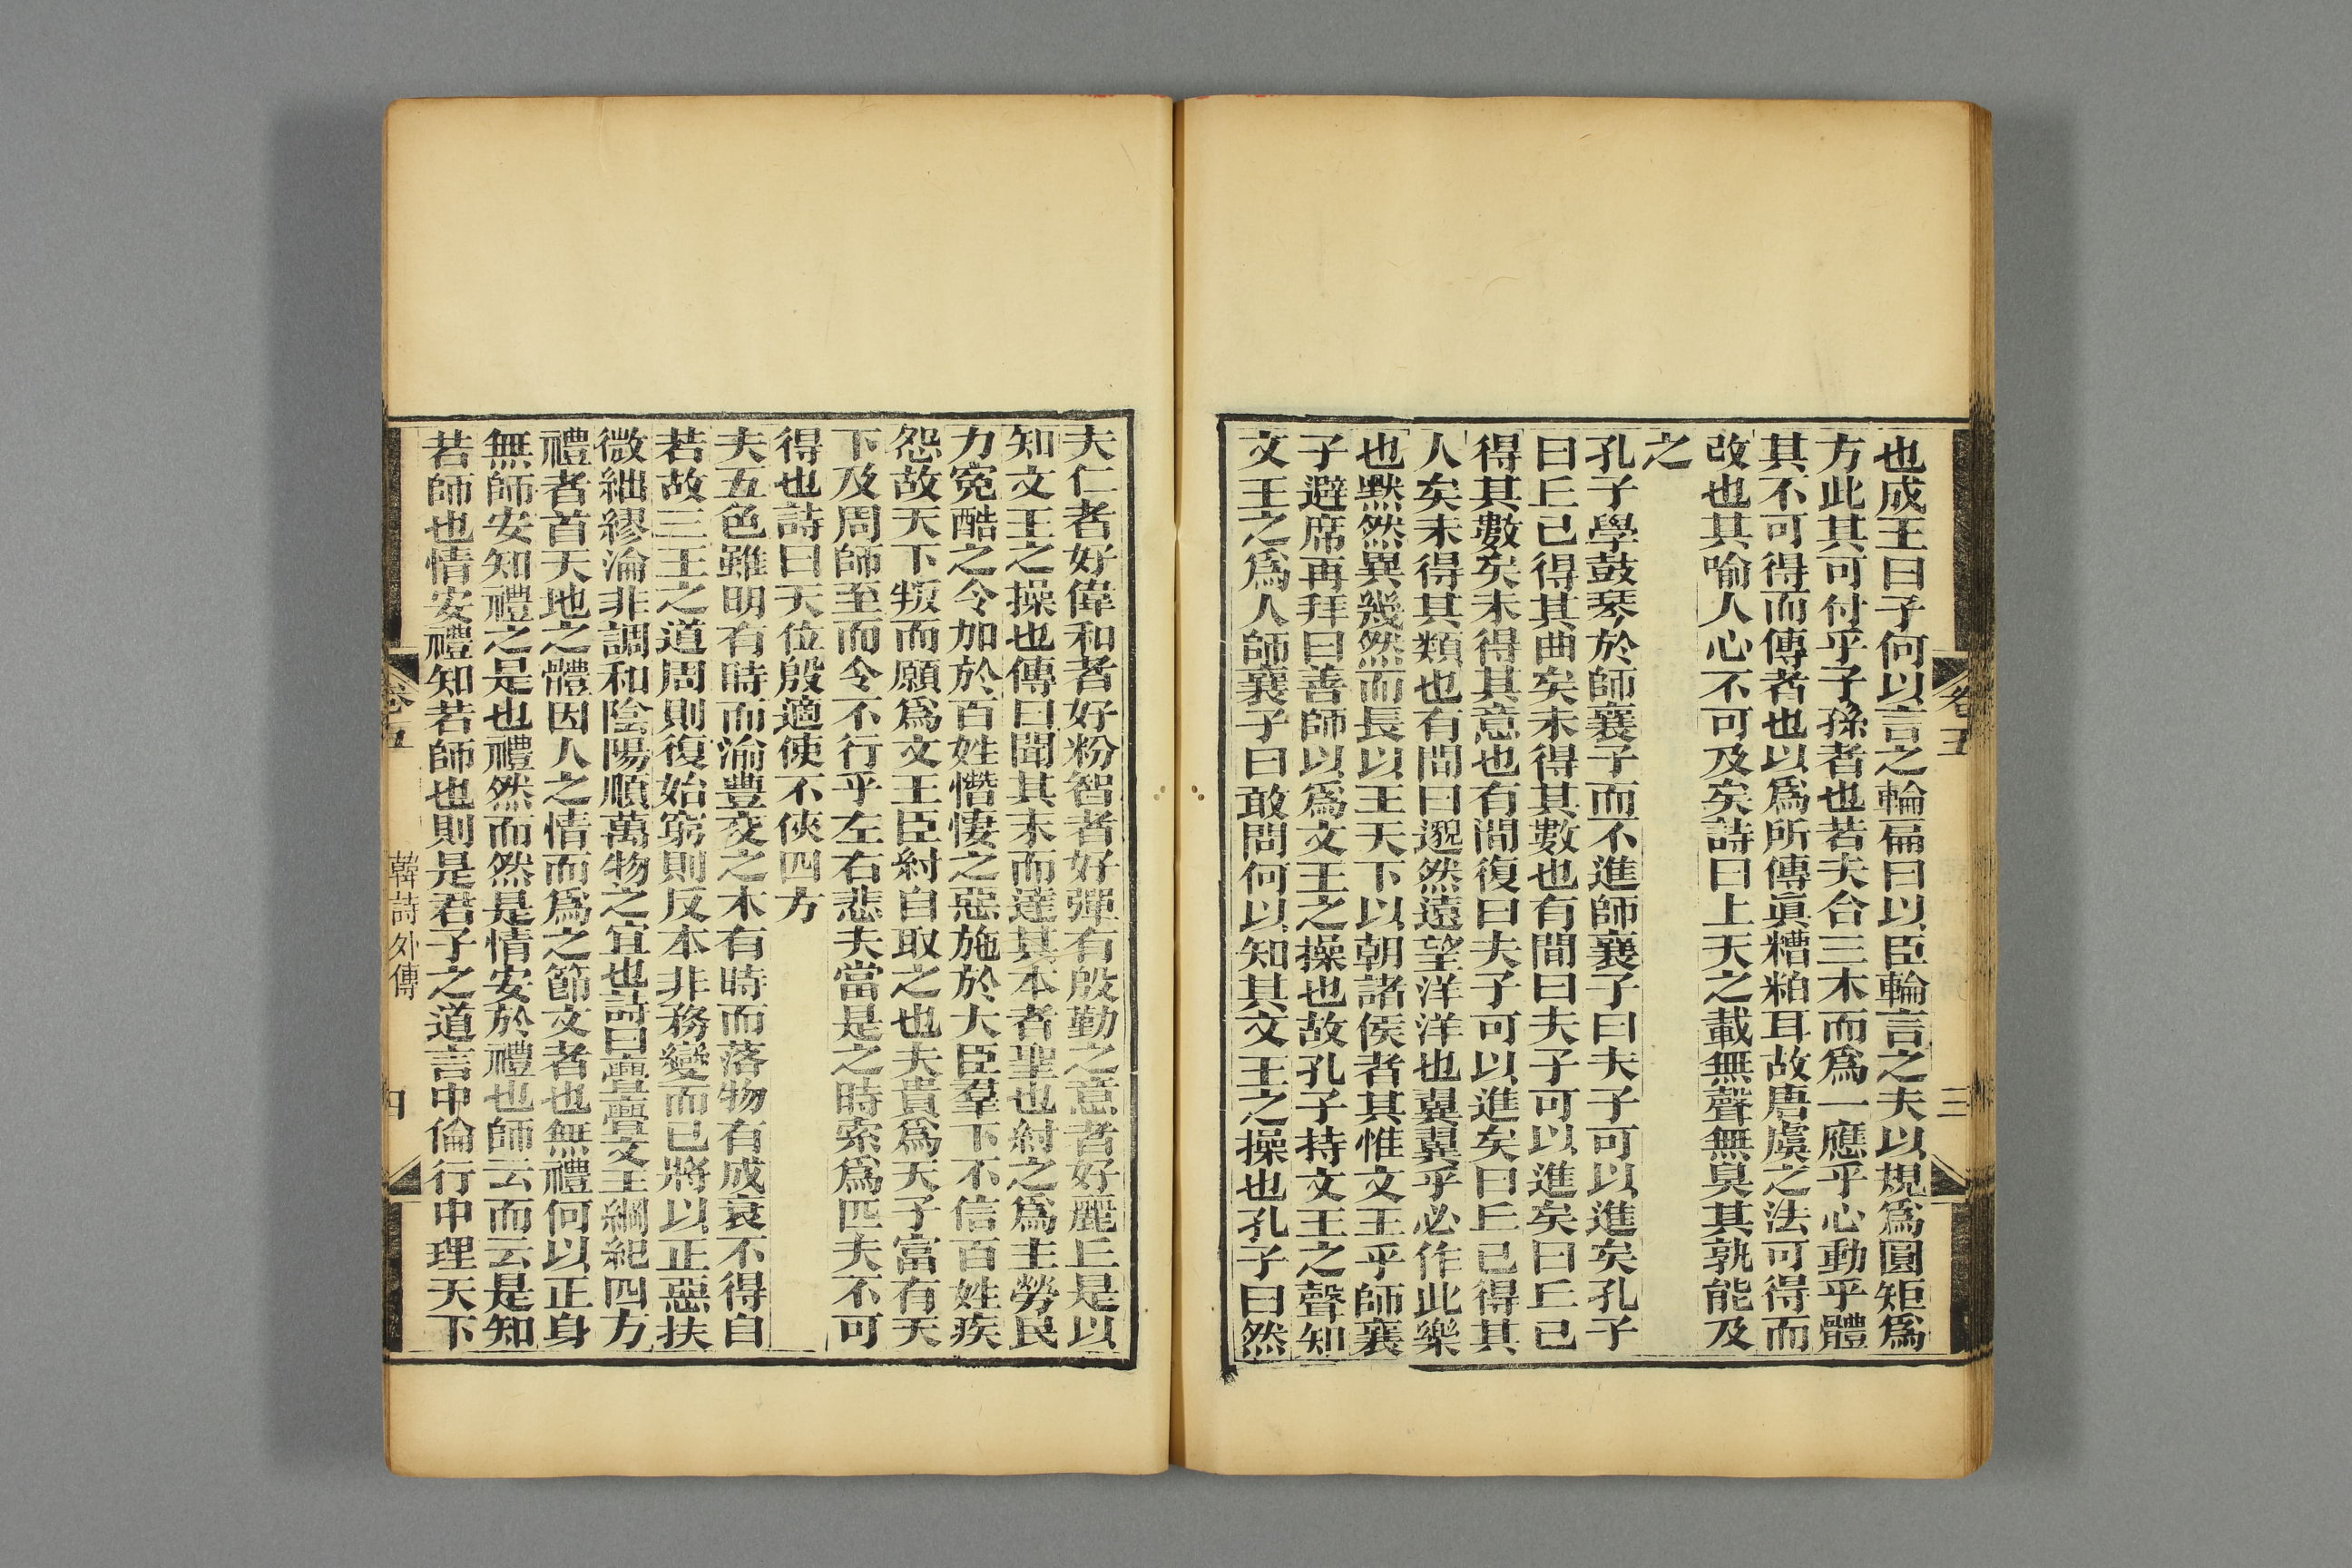 也成王曰子何以言之輪扁曰以臣輪言之夫以規爲圓矩爲
方此其可付乎子孫者也若夫合三木而爲一應乎心動乎體
其不可得而傳者也以爲所傳眞糟粕耳故唐虞之法可得而
改也其喻人心不可及矣詩曰上天之載無聲無臭其孰能及
之
孔子學鼓琴於師襄子而不進師襄子曰夫子可以進矣孔子
曰丘已得其曲矣未得其數也有間曰夫子可以進矣曰丘已
得其數矣未得其意也有間復曰夫子可以進矣曰丘已得其
人矣未得其類也有間曰邈然遠望洋洋也翼翼乎必作此樂
也黙然異幾然而長以王天下以朝諸侯者其惟文王乎師襄
子避席再拜曰善師以爲文王之操也故孔子持文王之聲知
文王之爲人師襄子曰敢問何以知其文王之操也孔子曰然
卷五
三
夫仁者好偉和者好粉智者好彈有殷勤之意者好麗丘是以
知文王之操也傳曰聞其末而達其本者聖也紂之爲主勞民
力寃酷之令加於百姓憯悽之惡施於大臣羣下不信百姓疾
怨故天下叛而願爲文王臣紂自取之也夫貴爲天子富有天
下及周師至而令不行乎左右悲夫當是之時索爲匹夫不可
得也詩曰天位殷適使不俠四方
夫五色雖明有時而渝豐交之木有時而落物有成衰不得自
若故三王之道周則復始窮則反本非務變而已將以正惡扶
微絀繆淪非調和陰陽順萬物之宜也詩曰亹亹文王綱紀四方
禮者首天地之體因人之情而爲之節文者也無禮何以正身
無師安知禮之是也禮然而然是情安於禮也師云而云是知
若師也情安禮知若師也則是君子之道言中倫行中理天下
卷五
韓詩外傳
四